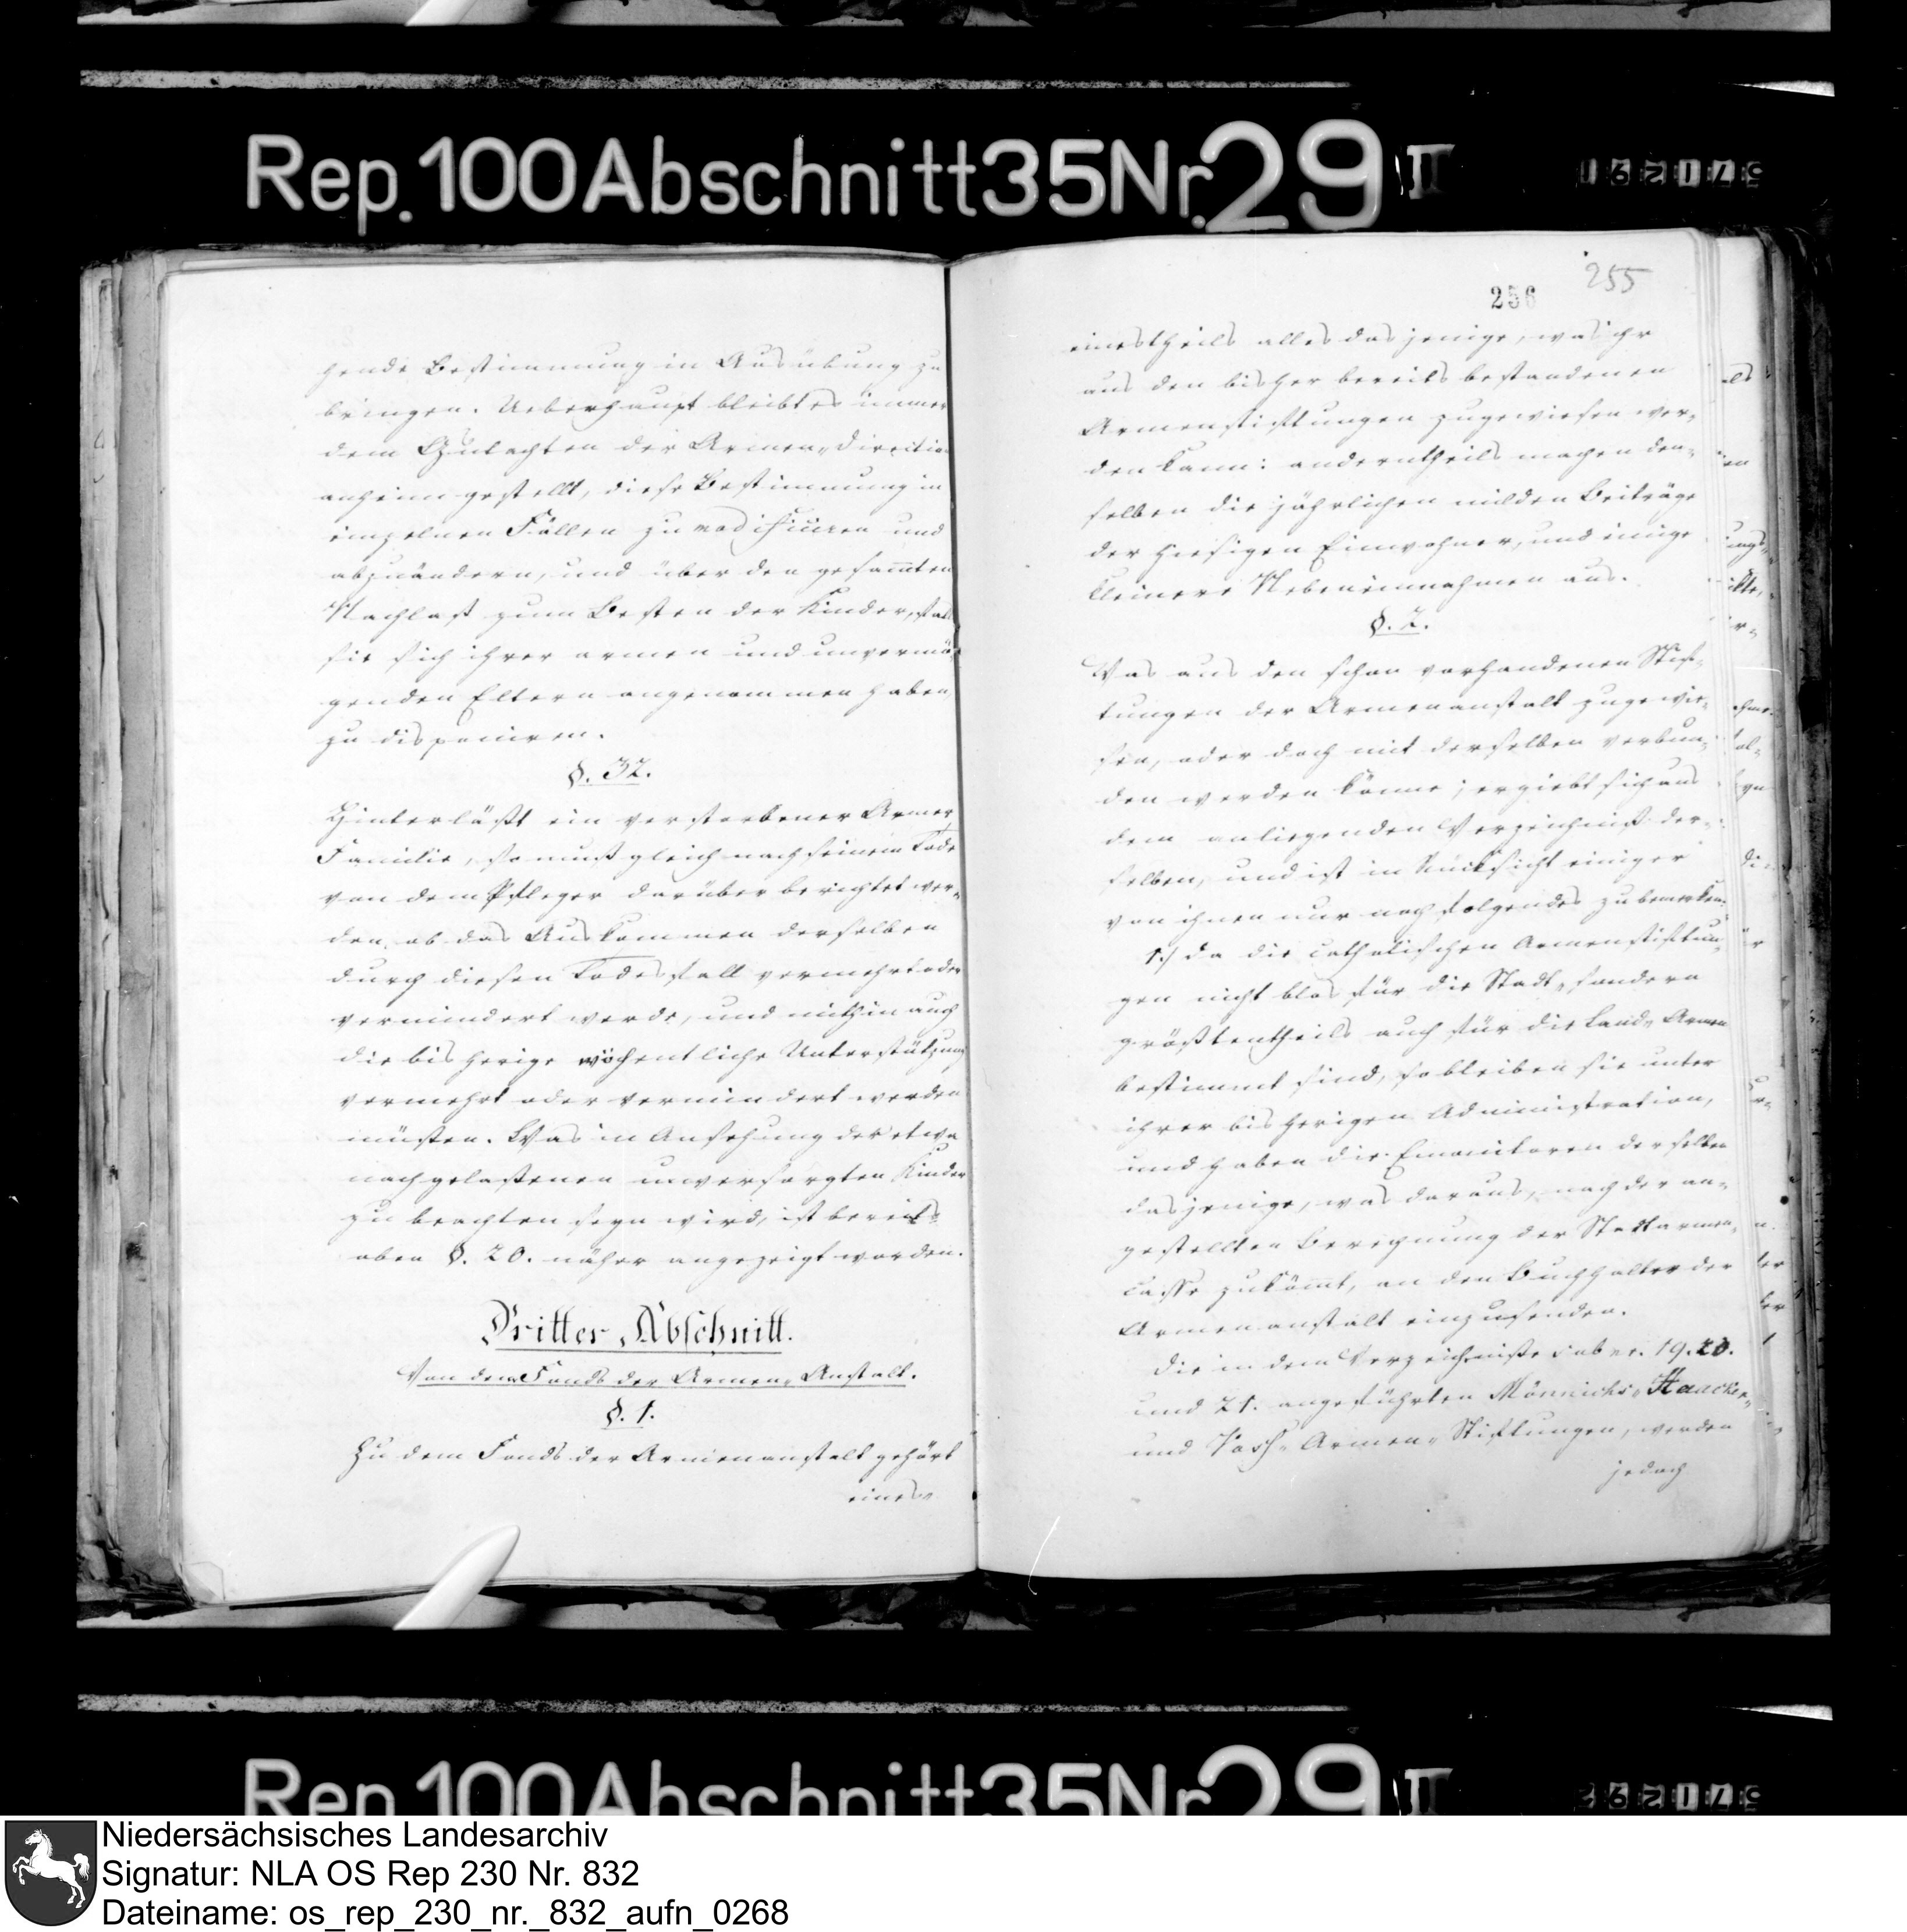 Rep. 100 Abschnitt 35 Nr. 29 II
hende Bestimmung in Ausübung zu
bringen. Ueberhaupt bleibt es immer
dem Gutachten der Armen-Direction
anheim gestellt, diese Bestimmung in
einzelnen Fällen zu modificiren und
abzuändern, und über den gesam̅ten
Nachlaß zum Besten der Kinder, falls
sie sich ihrer armen und unvermö-
genden Eltern angenommen haben,
zu disponiren.
§. 32.
Hinterläßt ein verstorbener Armer
Familie, so muß gleich nach seinem Tode
von dem Pfleger darüber berichtet wer-
den, ob das Auskommen derselben
durch diesen Todesfall vermehrt oder
vermindert werde, und mithin auch
die bisherige wöchentliche Unterstützung
vermehrt oder vermindert werden
müssen. Was in Ansehung der etwa
nachgelassenen unversorgten Kinder
zu beachten seyn wird, ist bereits
oben §. 20. näher angezeigt worden.
Dritter Abschnitt.
Von dem Fonds der Armen-Anstalt.
§. 1.
Zu dem Fonds der Armenanstalt gehört
eines-
255
256
einestheils alles dasjenige, was ihr
aus den bisher bereits bestandenen
Armenstiftungen zugewiesen wer-
den kann: anderntheils machen den-
selben die jährlichen milden Beiträge
der hiesigen Einwohner, und einige
kleinere Nebeneinnahmen aus.
§. 2.
Was aus den schon vorhandenen Stif-
tungen der Armenanstalt zugewie-
sen, oder doch mit derselben verbun-
den werden könne; ergiebt sich aus
dem anliegenden Verzeichniß der-
selben, und ist in Rücksicht einiger
von ihnen nur noch folgendes zu bemerken:
1./ da die catholischen Armenstiftun-
gen nicht blos für die Stadt- sondern
größtentheils auch für die Land-Armen
bestimmt sind, so bleiben sie unter
ihrer bisherigen Administration,
und haben die derselben
dasjenige, was daraus, nach der an-
gestellten Berechnung der Stadtarmen-
casse zuköm̅t, an den Buchhalter der
Armenanstalt einzusenden.
Die in dem Verzeichnisse sub nr. 19. 20.
und 21. angeführten Mönnichs- Haacken-
und Voss- Armen- Stiftungen, werden
jedoch
Rep. 100 Abschnitt 35 Nr. 29 II
Niedersächsisches Landesarchiv
Signatur: NLA OS Rep 230 Nr. 832
Dateiname: os_rep_230_nr._832_aufn_0268